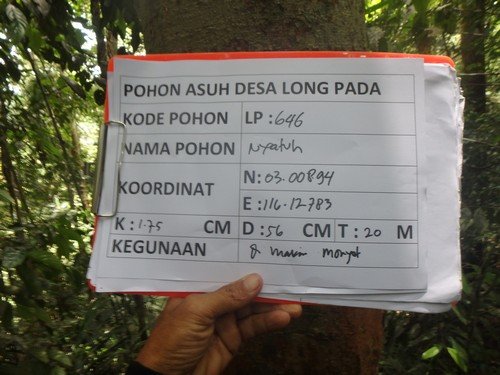 POHON ASUH DESA LONG PADA
KODE POHON LP : 646
NAMA POHON Nyatuh
KOORDINAT N: 03.00894
E : 116.12.783
K : 1.75 CM D : 56 CM T : 20 M
KEGUNAAN Monyet